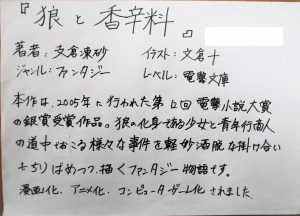 『狼と香辛料』
著者：支倉凍砂 イラスト：文倉十
ジャンル：ファンタジー レーベル：電撃文庫
本作は、2005年に行われた第12回電撃小説大賞
の銀賞受賞作品。狼の化身である少女と青年行商人
の道中起こる様々な事件を軽妙洒脱な掛け合い
をちりばめつつ、描くファンタジー物語です。
漫画化、アニメ化、コンピュータゲーム化されました。